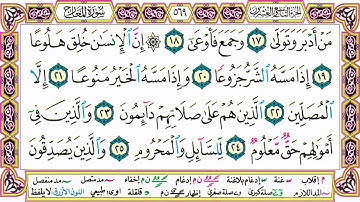 الجزء التاسع والعشرون ٥٦٩ سورة المعارج
مَنْ أَدْبَرَ وَتَوَلَّىٰ ﴿١٧﴾ وَجَمَعَ فَأَوْعَىٰ ﴿١٨﴾ ۞ إِنَّ الْإِنسَانَ خُلِقَ هَلُوعًا
﴿١٩﴾ إِذَا مَسَّهُ الشَّرُّ جَزُوعًا ﴿٢٠﴾ وَإِذَا مَسَّهُ الْخَيْرُ مَنُوعًا ﴿٢١﴾ إِلَّا
الْمُصَلِّينَ ﴿٢٢﴾ الَّذِينَ هُمْ عَلَىٰ صَلَاتِهِمْ دَائِمُونَ ﴿٢٣﴾ وَالَّذِينَ فِي
أَمْوَالِهِمْ حَقٌّ مَّعْلُومٌ ﴿٢٤﴾ لِّلسَّائِلِ وَالْمَحْرُومِ ﴿٢٥﴾ وَالَّذِينَ يُصَدِّقُونَ